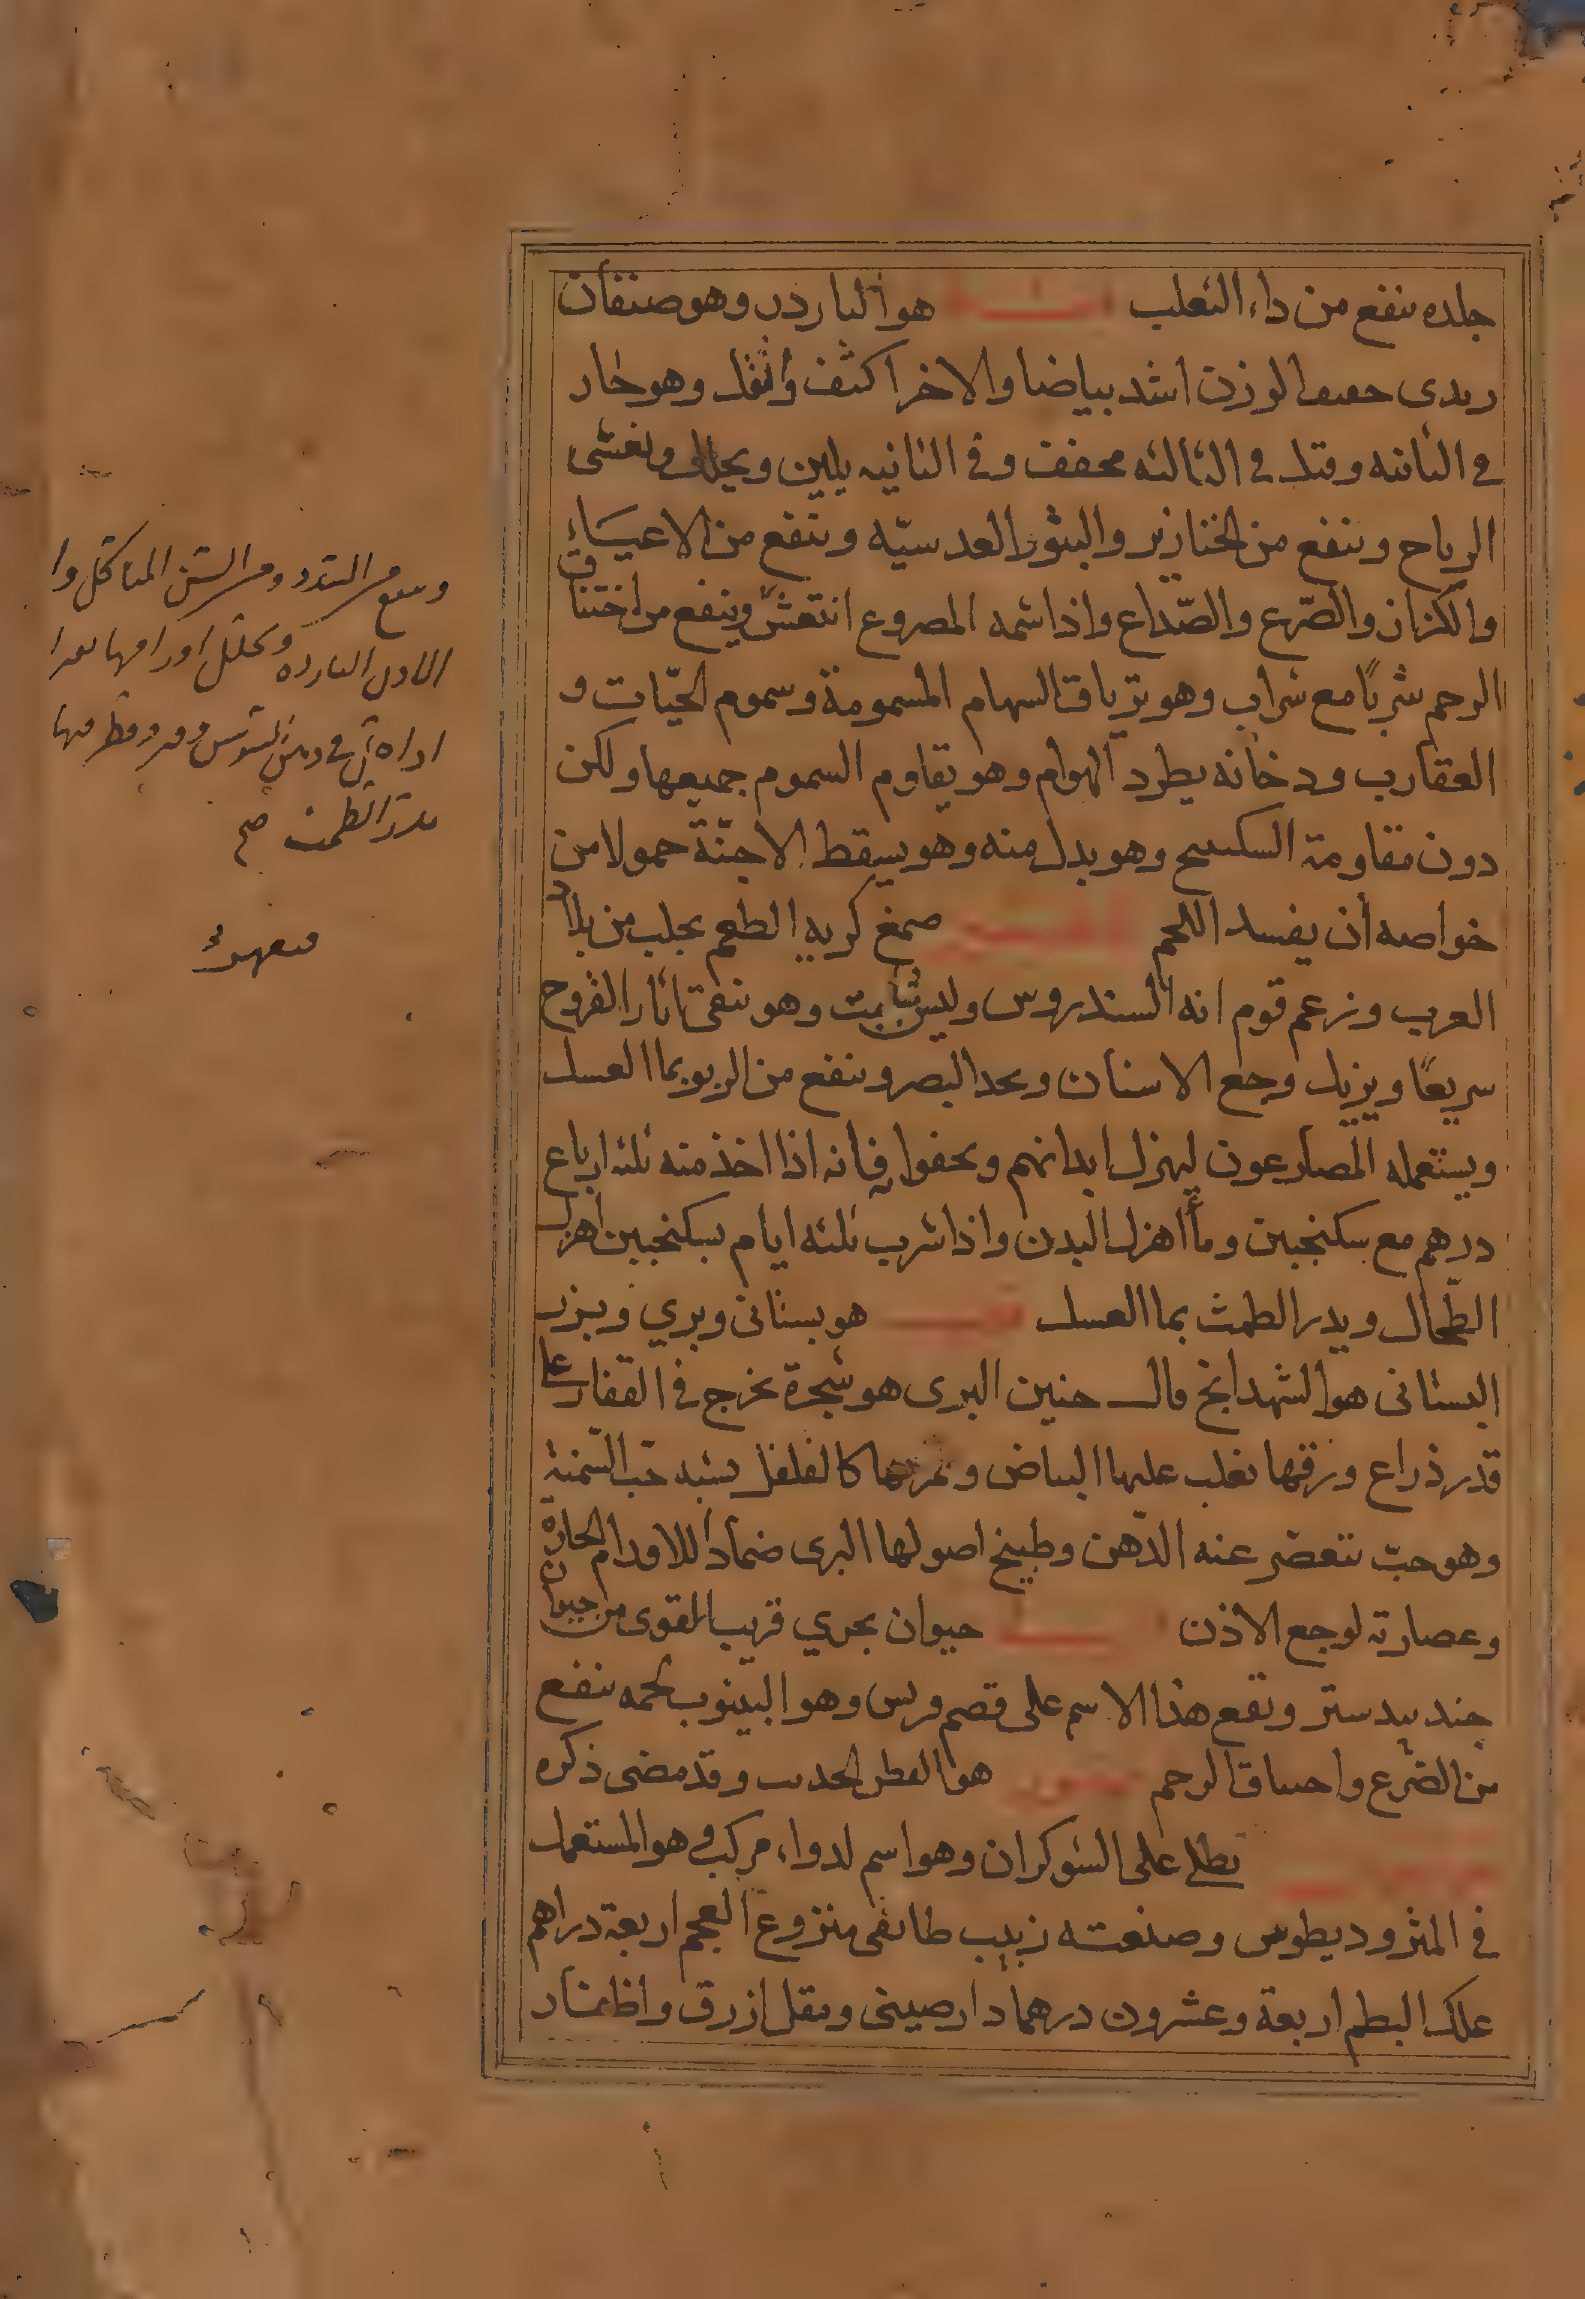 جلده ينفع من داء الثعلب هو البارزد وهو صنفان
زبدى خفيف الوزن اشد بياضا والاخر اكثف واثقل وهو حار
فى الثانيه وقيل فى الثالثه مجفف وفى الثانيه يلين ويحلل ويفشى
الرياح وينفع من الخنازير والبثور العدسيّه وينفع من الاعياء
والكزاز والصّرع والصّداع واذا شمه المصروع انتعش وينفع من اختناق
الرحم شربًا مع شراب وهو ترياق السهام المسمومة وسموم الحيّات و
العقارب ودخانه يطرد الهوام وهو يقاوم السموم جميعها ولكن
دون مقاومة السكبينج وهو بدل منه وهو يسقط الاجنّة حمولا من
خواصه أن يفسد اللحم صمغ كريه الطعم يجلب من بلاد
العرب وزعم قوم انه السندروس وليس بثابت وهو ينقى آثار القروح
سريعًا ويزيل وجع الاسنان ويحد البصر وينفع من الربو بما العسل
ويستعمله المصارعون ليهزل ابدانهم ويخفوا فانه اذا اخذ منه ثلثه ارباع
درهم مع سكنجبين وماأ اهزل البدن واذا شرب ثلثه ايام بسكنجبين اهزل
الطّحال ويدر الطمث بما العسل هو بستانى وبري وبزر
البستانى هو الشهدانج قال حنين البرى هو شجرة تخرج فى القفار على
قدر ذراع ورقها يغلب عليها البياض وثمرتها كالفلفل يشبه حبّ السّمنة
وهو حبّ ينعصر عنه الدّهن وطبيخ اصولها البرى ضمادًا للاورام الحارة
وعصارته لوجع الاذن حيوان بحري قريب القوى من حيوان
جند بيدستر ويقع هذا الاسم على قصم قريس وهو الينبوب لحمه ينفع
من الصّرع واختناق الرحم هو القطر الحديث وقد مضى ذكره
يطلى على الشوكران وهو اسم لدواء مركب وهو المستعمل
فى المثروديطوس وصنعته زبيب طائفى منزوع العجم اربعة دراهم
علك البطم اربعة وعشرون درهما دارصينى ومقل ازرق واظفار
وينفع من السدد ومن السّن المتاكل وا
الاذن البارده ويحلل اورامها
مدرّ الطمث صح